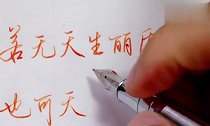 若无天生丽
也可天